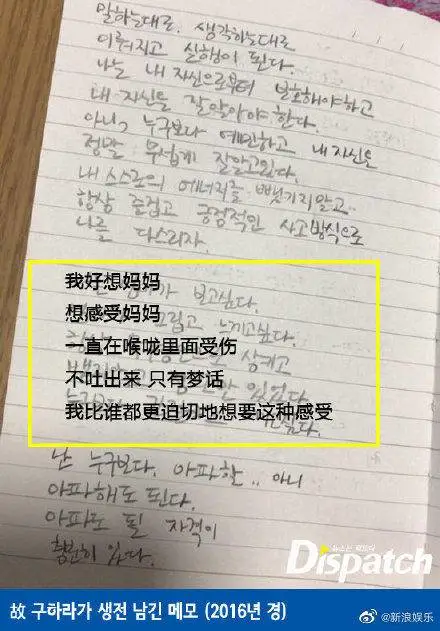 말하는대로. 생각하는대로
이뤄지고 실행이 된다.
나는 내 자신으로부터 보호해야하고
내 자신을 잘 알아야 한다.
아니, 누구보다 예민하고 내 자신을
정말 무섭게 잘알고있다.
내 스스로의 에너지를 뺏기지 말고..
항상 즐겁고 긍정적인 사고방식으로
나를 다스리자.
我好想妈妈
가 보고싶다.
想感受妈妈
그립고 느끼고싶다.
一直在喉咙里面受伤
삼키고
不吐出来 只有梦话
있었다.
我比谁都更迫切地想要这种感受
싶다.
난 누구보다. 아파할.. 아니
아파해도 된다.
아파도 될 자격이
충분히 있다.
Dispatch
故 구하라가 생전 남긴 메모 (2016년 경)
@新浪娱乐